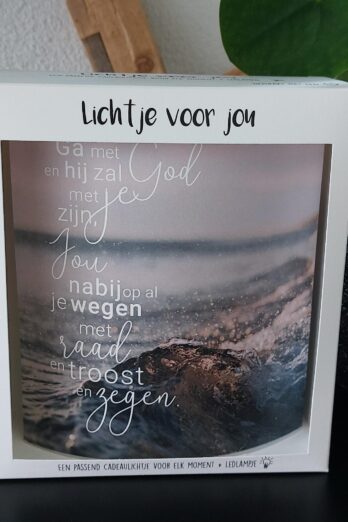 Lichtje voor jou
Ga met God
en hij zal
met je
zijn,
Jou
nabij op al
je wegen
met
raad
en troost
en zegen.
EEN PASSEND CADEAULICHTJE VOOR ELK MOMENT + LEDLAMPJE